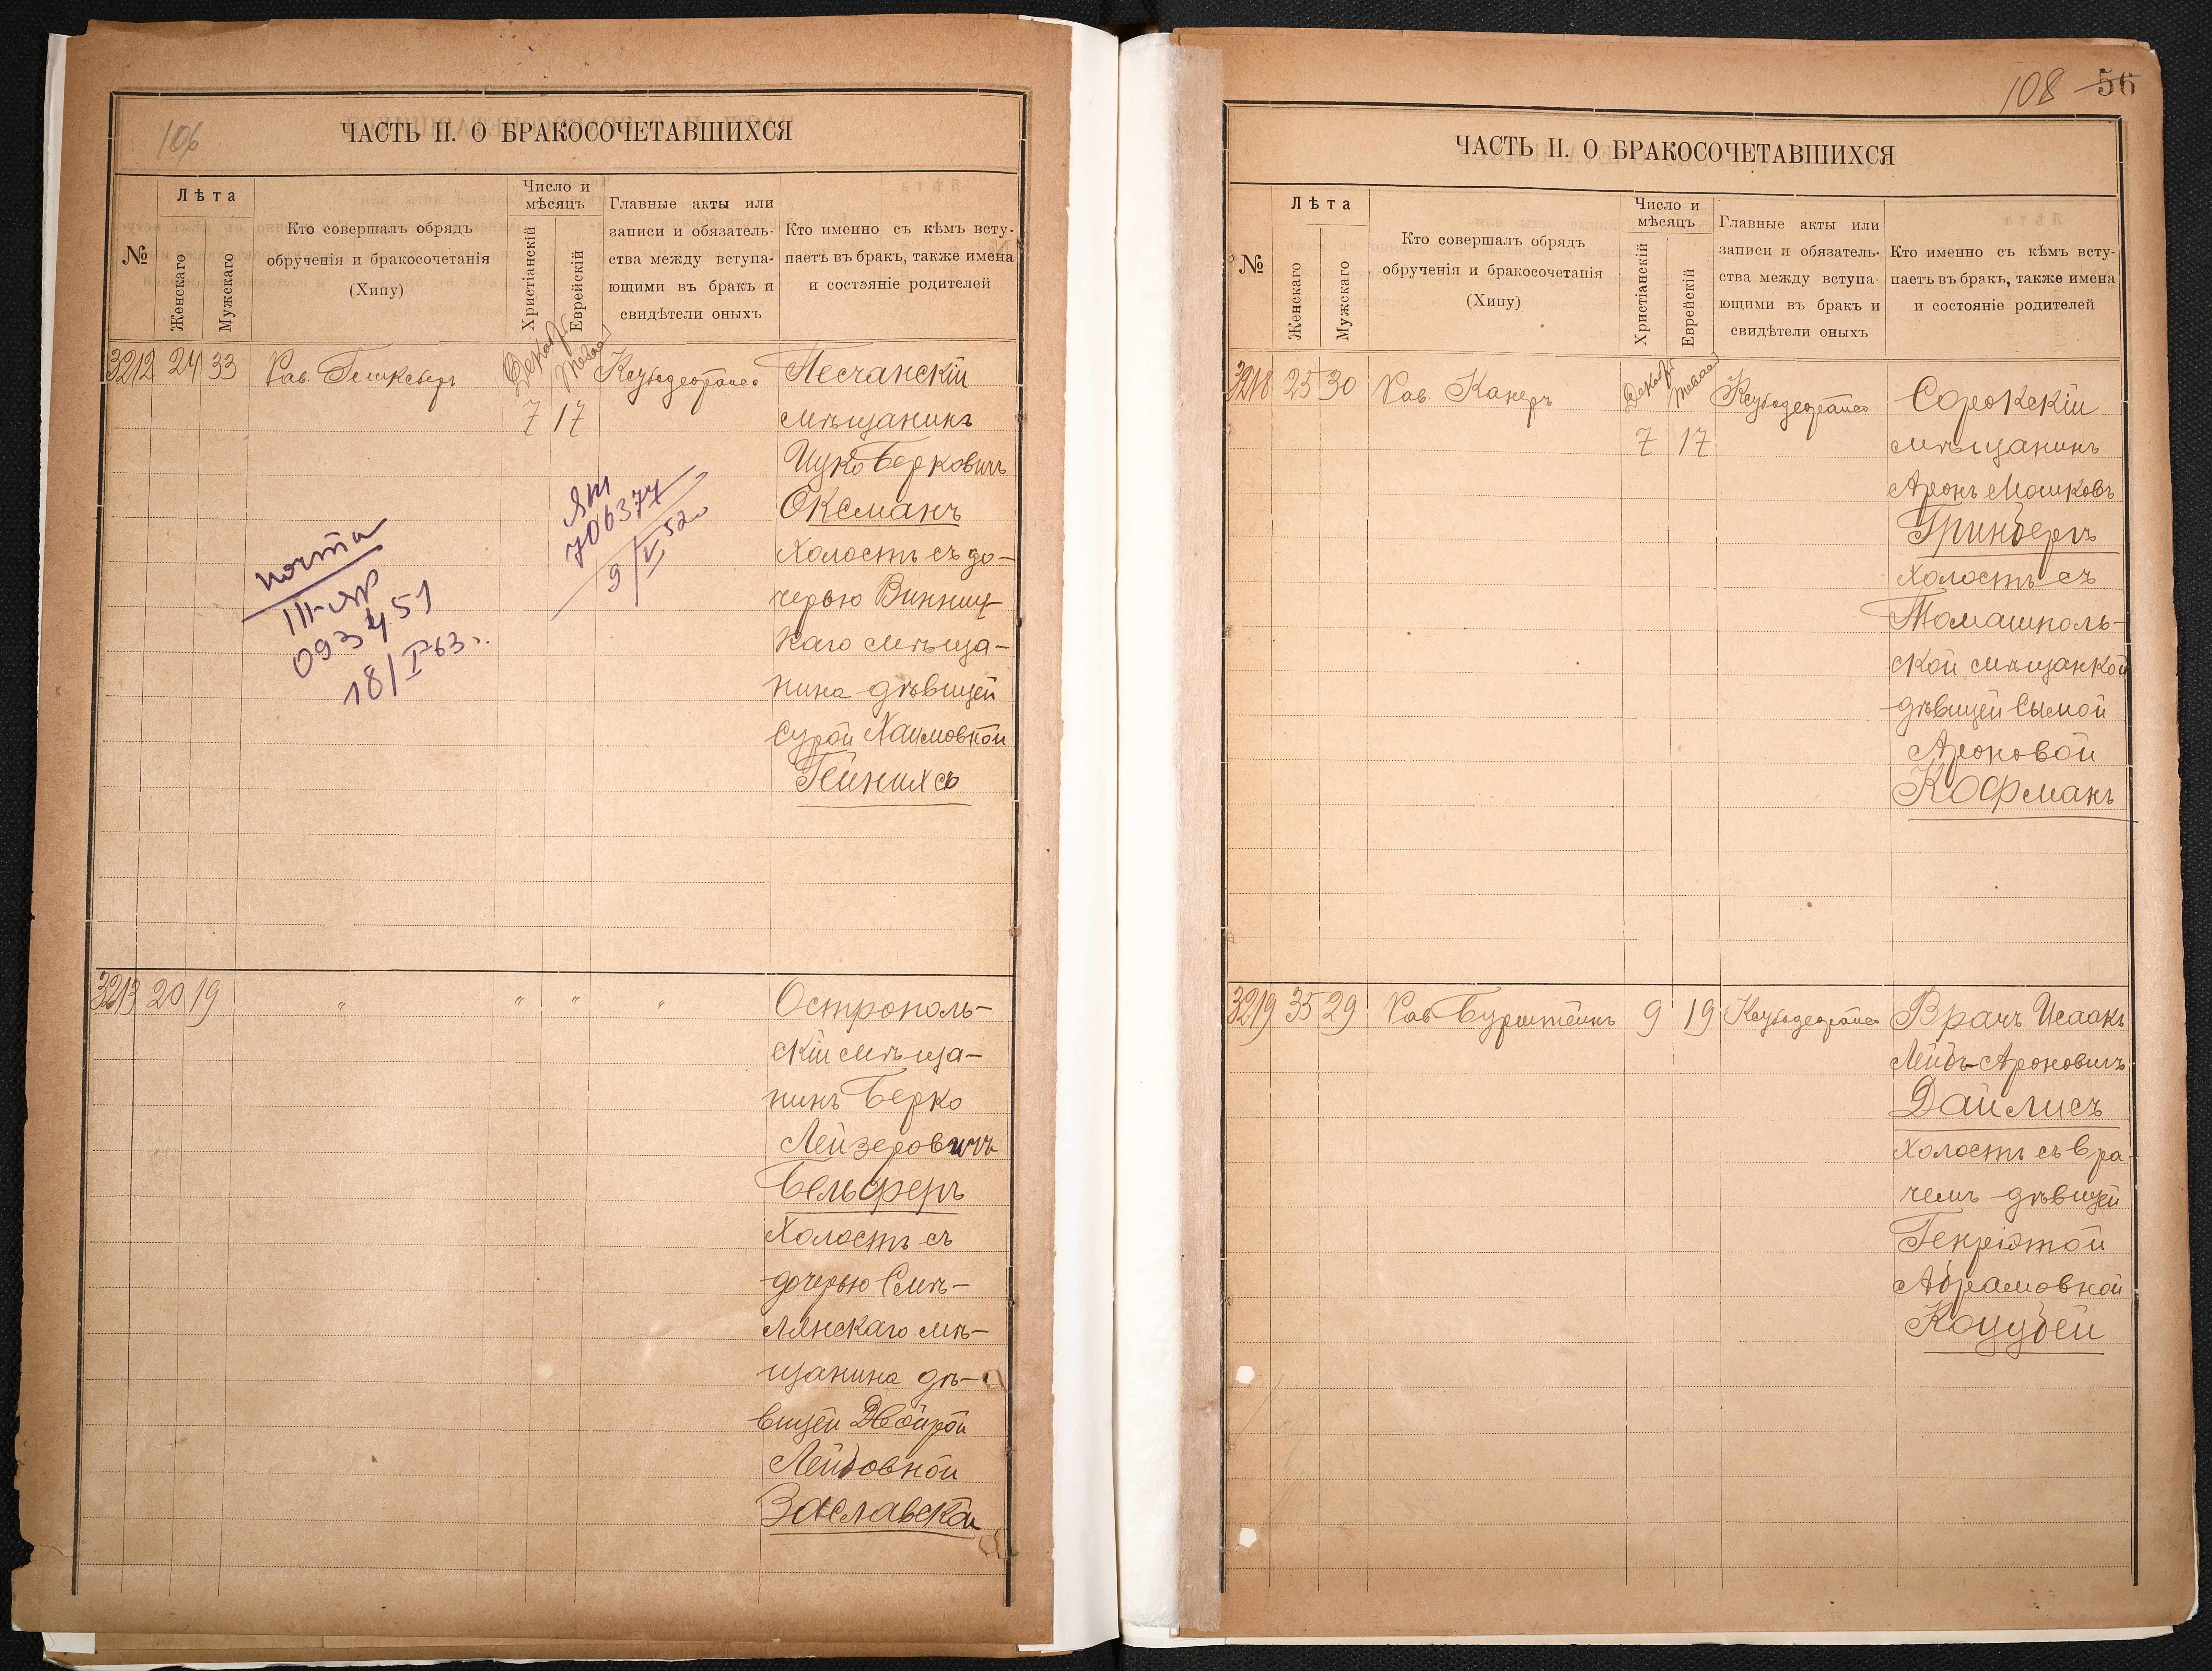 106
ЧАСТЬ II. О БРАКОСОЧЕТАВШИХСЯ
№
Лѣта
Женскаго
Мужскаго
Кто совершалъ обрядъ
обрученія и бракосочетанія
(Хипу)
Число и
мѣсяцъ
Христіанскій
Еврейскій
Главные акты или
записи и обязатель-
ства между вступа-
ющими въ бракъ и
свидѣтели оныхъ
Кто именно съ кѣмъ всту-
паетъ въ бракъ, также имена
и состояніе родителей
3212 24 33 Рав. Декабр Тевес Песчанскій
7 17 мѣщанинъ
Ицко Берковичъ
Оксманъ
холостъ съ до-
черью Винниц-
каго мѣща-
нина дѣвицей
Сурой Хаимовной
Гейнихсъ
почта
III-ЯР
093451
18/I 63 г.
ЯМ
706377
9/V 52 г.
3213 20 19 " " " " Острополь-
скій мѣща-
нинъ Берко
Лейзеровичъ
Бельферъ
холостъ съ
дочерью Смѣ-
лянскаго мѣ-
щанина дѣ-
вицей Двойрой
Лейбовной
Заславской
108 56
ЧАСТЬ II. О БРАКОСОЧЕТАВШИХСЯ
№
Лѣта
Женскаго
Мужскаго
Кто совершалъ обрядъ
обрученія и бракосочетанія
(Хипу)
Число и
мѣсяцъ
Христіанскій
Еврейскій
Главные акты или
записи и обязатель-
ства между вступа-
ющими въ бракъ и
свидѣтели оныхъ
Кто именно съ кѣмъ всту-
паетъ въ бракъ, также имена
и состояніе родителей
3218 25 30 Рав. Канеръ Декабр Тевес Сорокскій
7 17 мѣщанинъ
Аронъ Мошковъ
Гринбергъ
холостъ съ
Томашполь-
ской мѣщанкой
дѣвицей Сымой
Ароновой
Кофманъ
3219 35 29 Рав Бурштейнъ 9 19 Врачъ Исаакъ
Лейбъ-Ароновичъ
Дайлисъ
холостъ съ вра-
чемъ дѣвицей
Генріэтой
Абрамовной
Коцубей